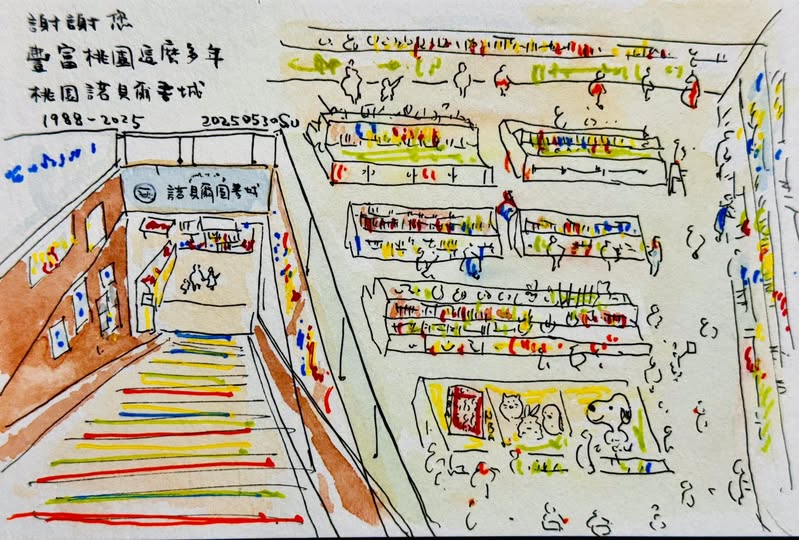 謝謝您
豐富桃園這麼多年
桃園諾貝爾書城
1988-2025 20250530Su
諾貝爾圖書城